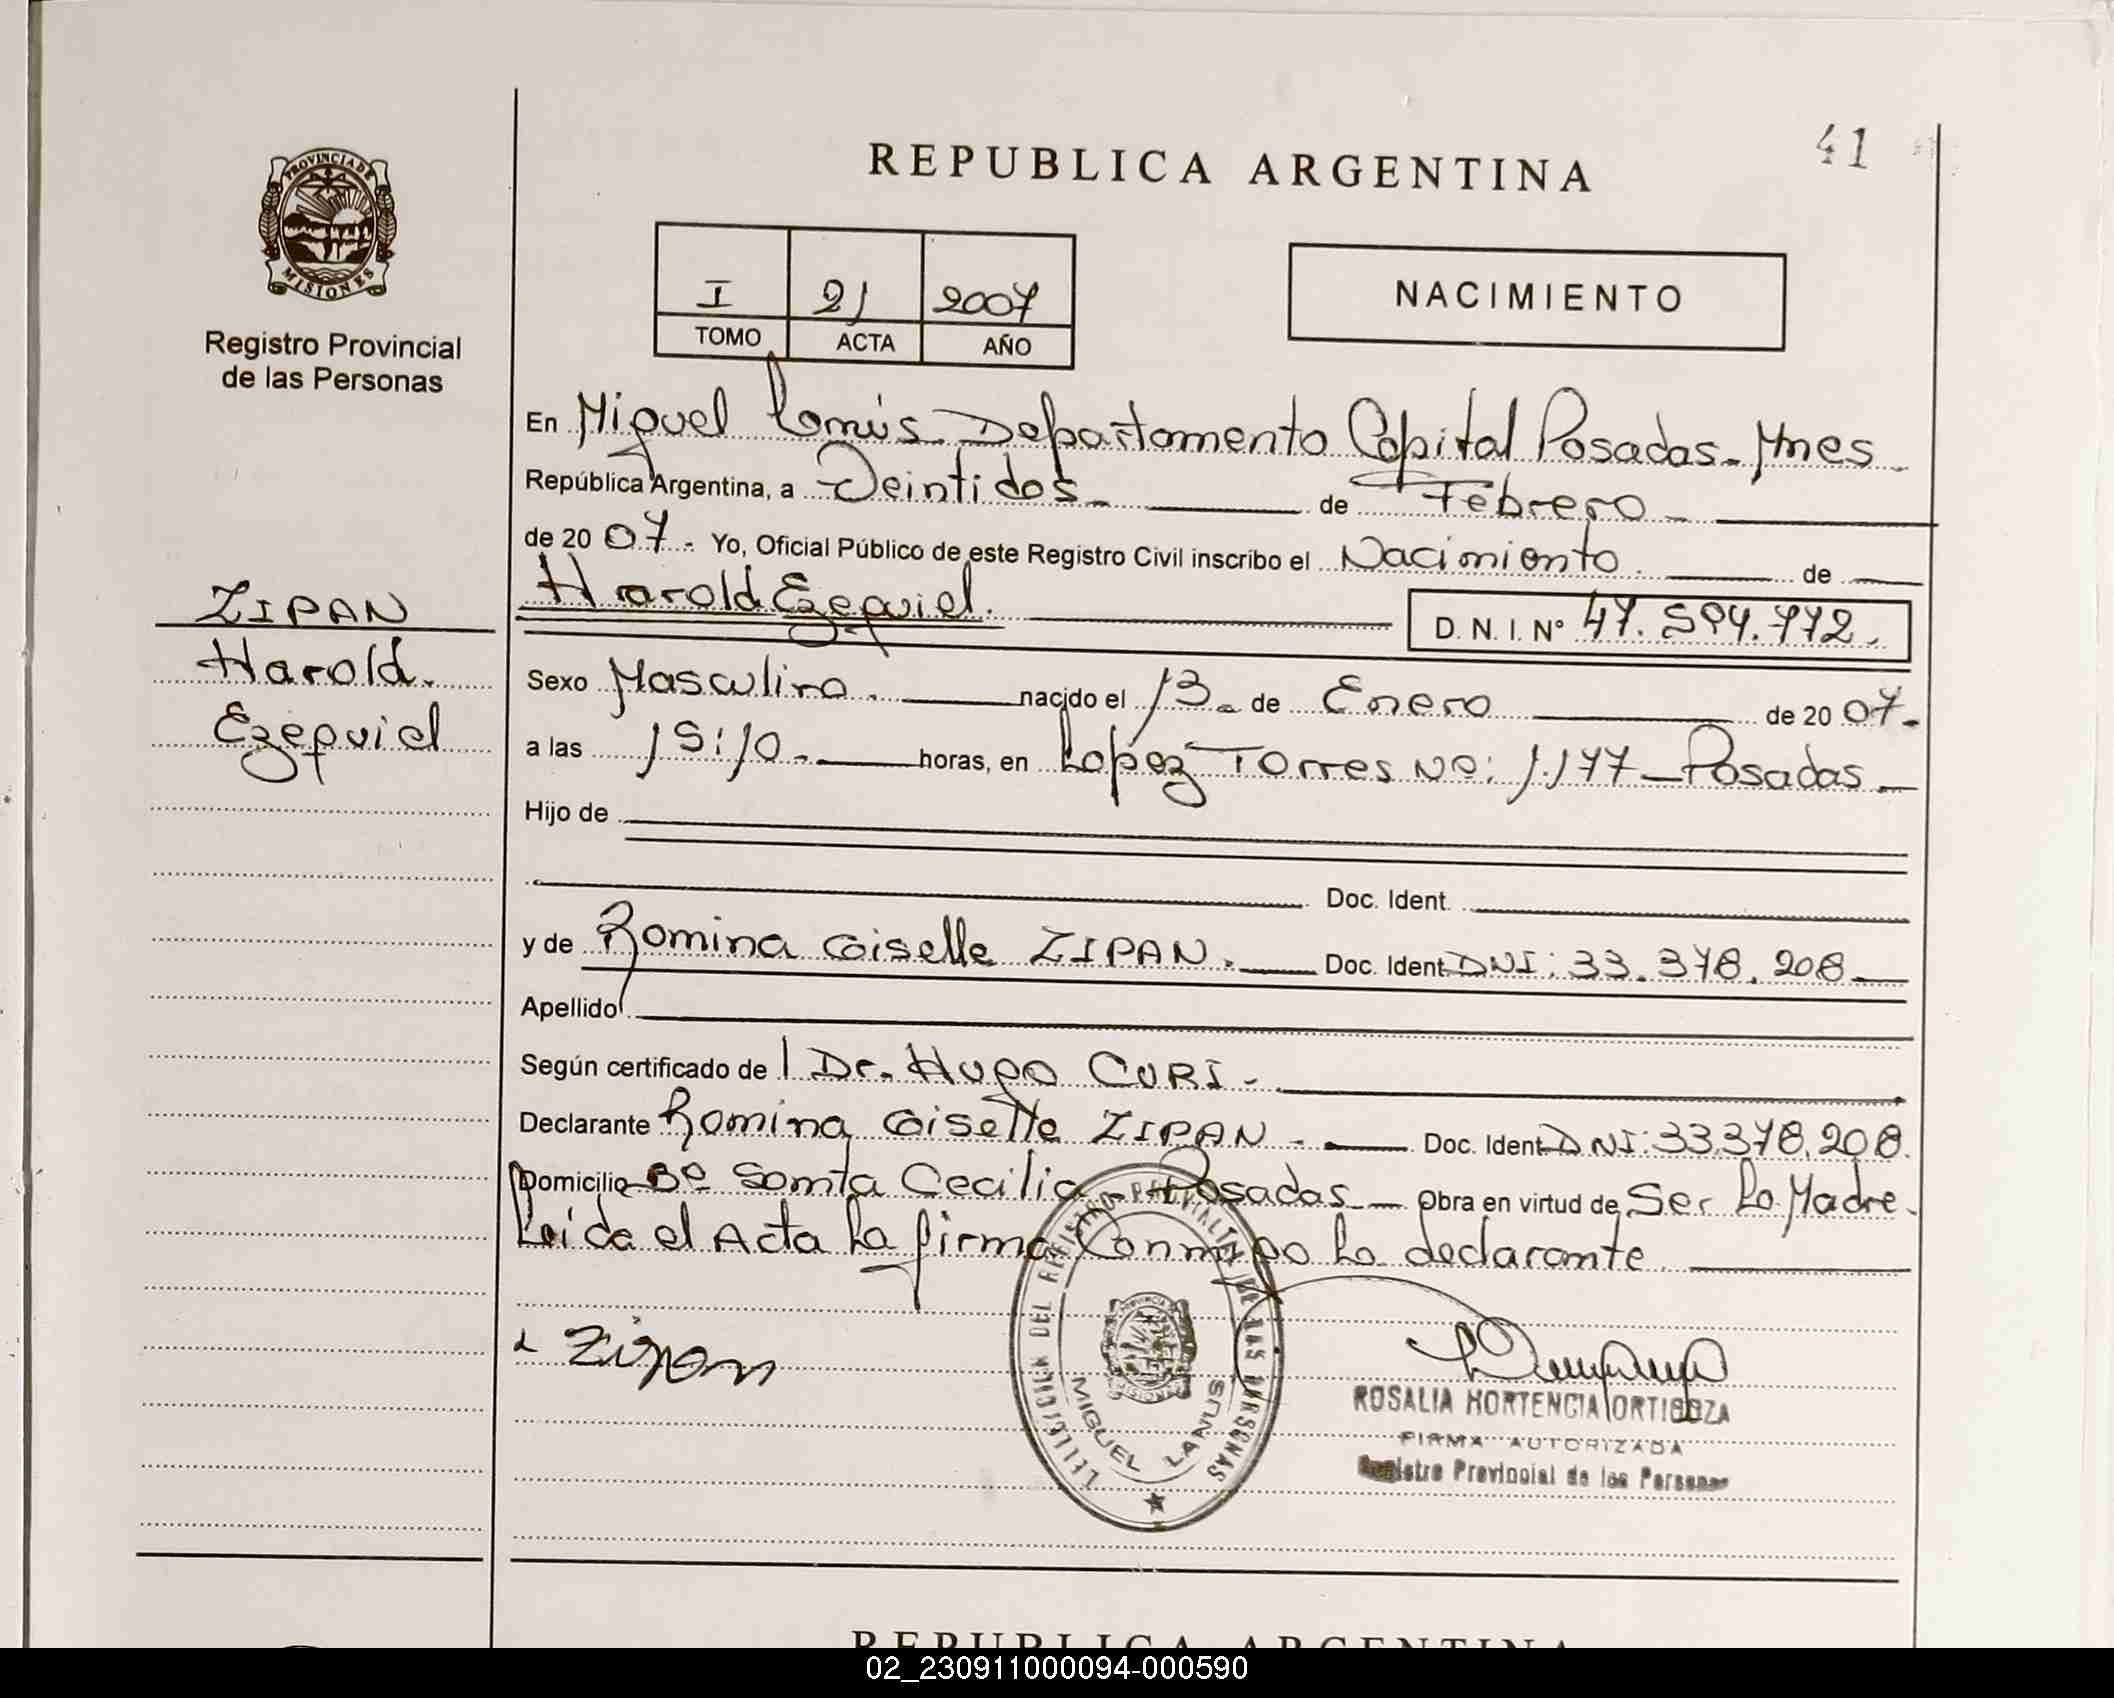 41
REPUBLICA ARGENTINA
PROVINCIA DE
MISIONES
I 21 2007
TOMO ACTA AÑO
NACIMIENTO
Registro Provincial
de las Personas
En Miguel Lanús Departamento Capital Posadas - Mnes -
República Argentina, a Veintidos - de Febrero -
de 20 07 - Yo, Oficial Público de este Registro Civil inscribo el Nacimiento de
Harold Ezequiel. D. N. I. Nº 47.594.772.
ZIPAN
Harold.
Ezequiel
Sexo Masculino. nacido el 13 - de Enero de 20 07 -
a las 15:10 - horas, en Lopez Torres No: 1.177 - Posadas -
Hijo de
Doc. Ident.
y de Romina Giselle ZIPAN. Doc. Ident DNI: 33.378.208 -
Apellido
Según certificado de l Dr. Hugo CURI -
Declarante Romina Giselle ZIPAN - Doc. Ident DNI: 33.378.208.
Domicilio Bº Santa Cecilia - Posadas - Obra en virtud de Ser La Madre.
Leida el Acta La firma Conmigo La declarante
Zipan
DEL REGISTRO PROVINCIAL DE LAS PERSONAS
MIGUEL LANUS
ROSALIA HORTENCIA ORTIGOZA
FIRMA AUTORIZADA
Registro Provincial de las Personas
REPUBLICA ARGENTINA
02_230911000094-000590